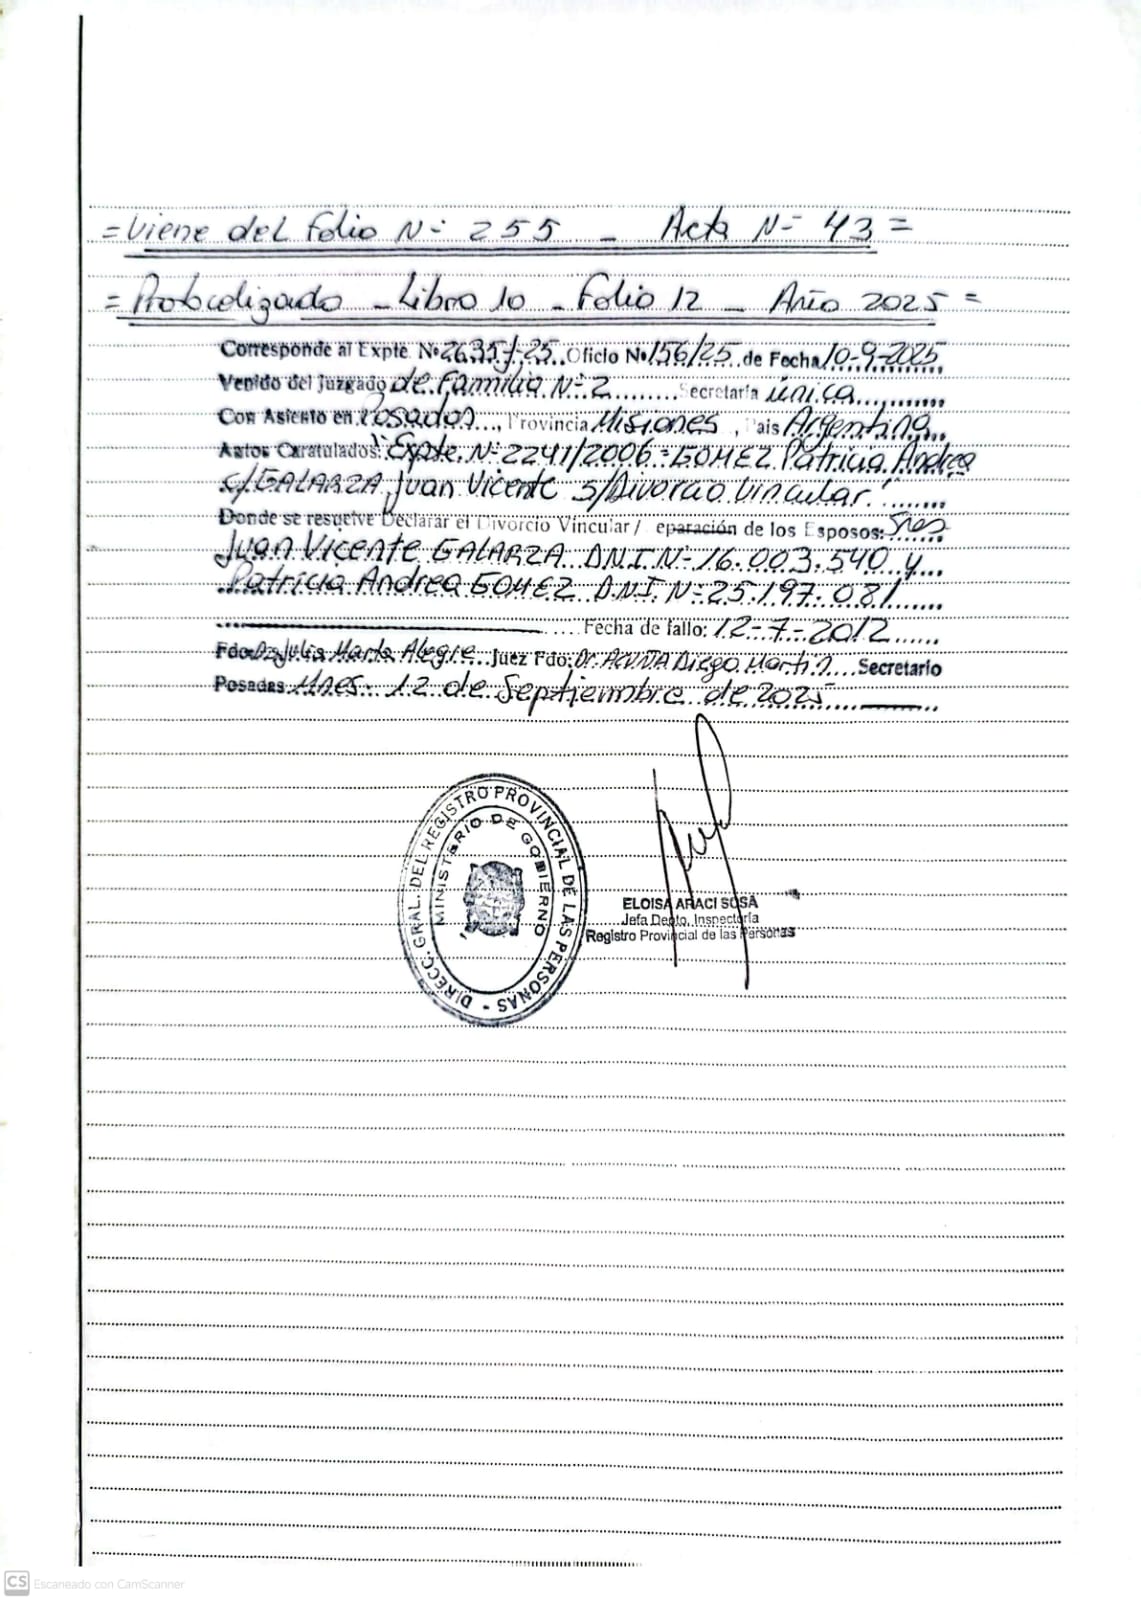 = Viene del Folio N= 255 _ Acta N= 43 =
= Protocolizado - Libro 10 - Folio 12 - Año 2025 =
Corresponde al Expte. Nº2635J-25 Oficio Nº156/25 de Fecha 10-9-2025
Venido del Juzgado de Familia Nº 2 Secretaria única
Con Asiento en Posadas, Provincia Misiones, Pais Argentina
Autos Caratulados: "Expte. Nº 2241/2006 = GOMEZ Patricia Andrea
c/GALARZA Juan Vicente s/Divorcio Vincular."
Donde se resuelve Declarar el Divorcio Vincular/ eparación de los Esposos: Sres
Juan Vicente GALARZA D.N.I. Nº 16.003.540 y
Patricia Andrea GOMEZ D.N.I. Nº 25.197.081
Fecha de fallo: 12-7-2012
Fdo: Dr. Julia Marta Alegre Juez Fdo: Dr. ACUÑA Diego Martin Secretario
Posadas Mnes. 12 de Septiembre de 2025
DIRECC. GRAL. DEL REGISTRO PROVINCIAL DE LAS PERSONAS -
MINISTERIO DE GOBIERNO
ELOISA ARACI SOSA
Jefa Depto. Inspectoría
Registro Provincial de las Personas
CS Escaneado con CamScanner